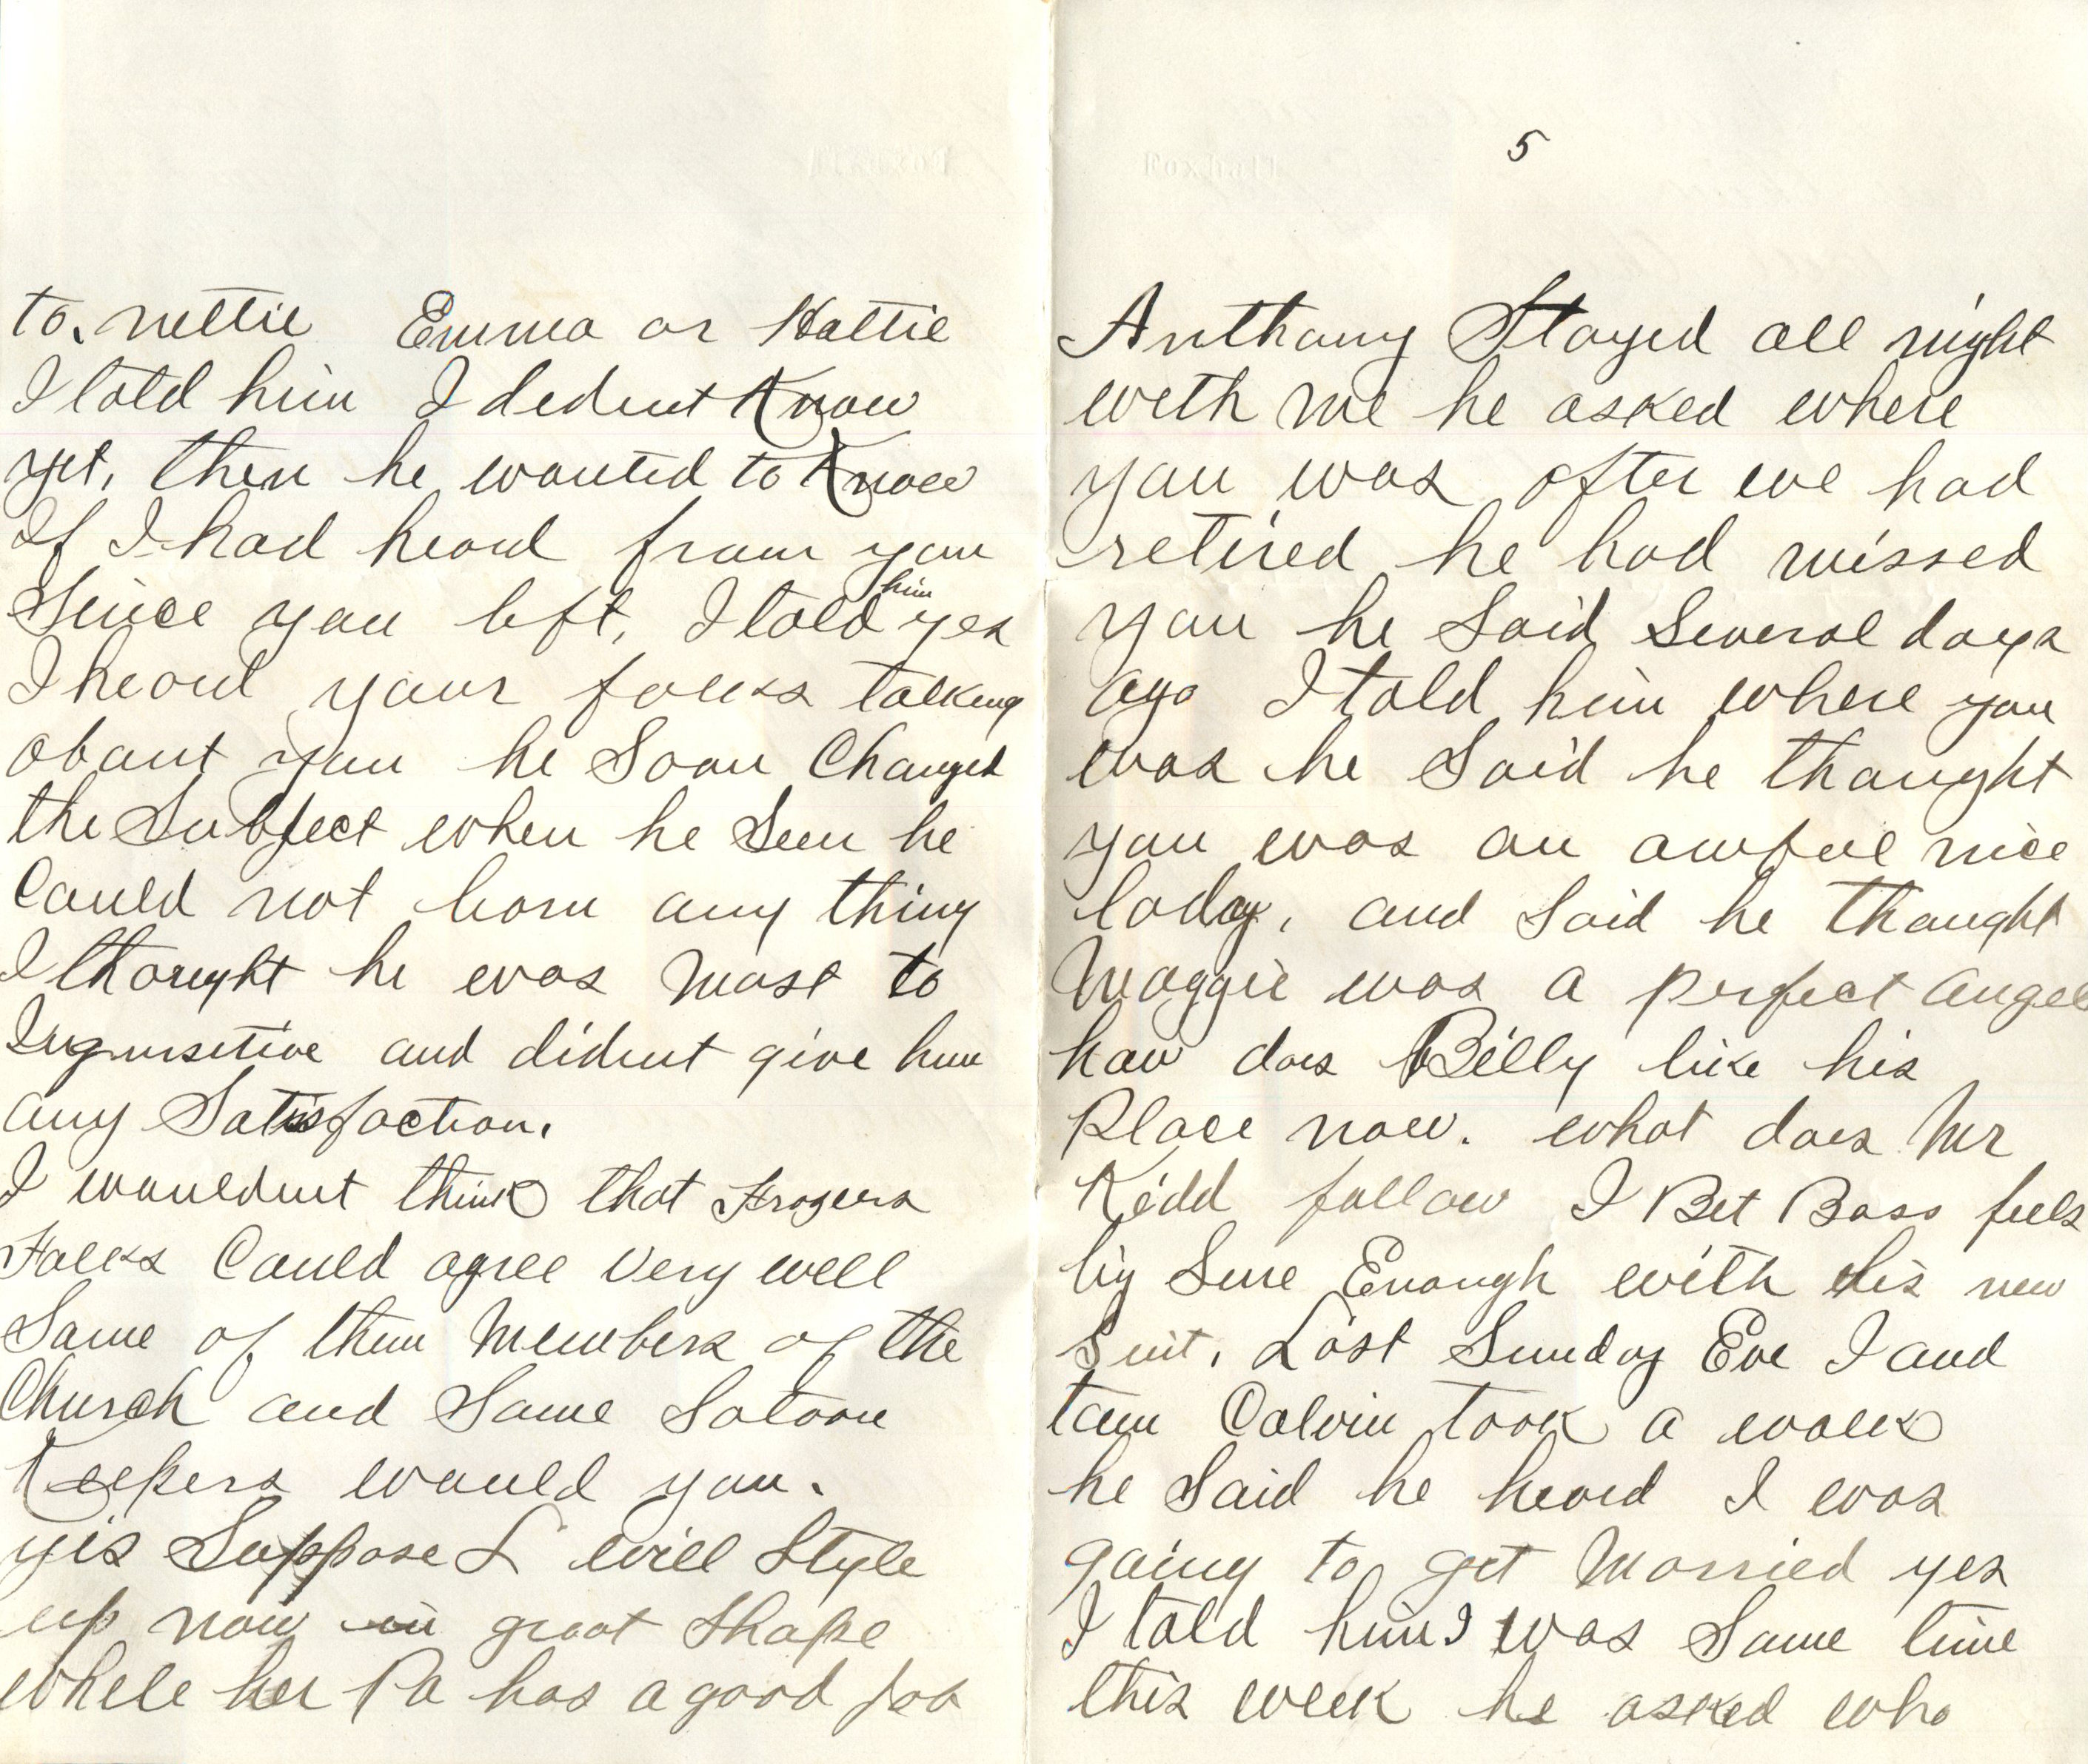 to. nettie Emma or Hattie
I told him I dident Know
yet, then he wanted to Know
If I had heard from you
Since you left, I told him yes
I heard your folks talking
about you he Soon Changed
the Subject when he Seen he
Could not learn any thing
I thought he was Most to
Inquisitive and didnt give him
any Satisfaction.
I wouldent think that
Folks Could agree Very well
Some of them Members of the
Church and Some Saloon
Keepers would you.
yis Suppose L will Style
up now in great Shape
while her Pa has a good Job
Foxhall
5
Anthony Stayed all night
with me he asked where
you was after we had
retired he had missed
you he Said Several days
ago I told him where you
was he Said he thought
you was an awful nice
lady, and Said he thought
Maggie was a perfect angel
how does Billy like his
Place now. what does Mr
Kidd follow I Bet Bass feels
big Sure Enough with his new
Suit. Last Sunday Eve I and
tom Calvin took a walk
he Said he heard I was
going to get Married yes
I told him I was Some time
this week he asked who